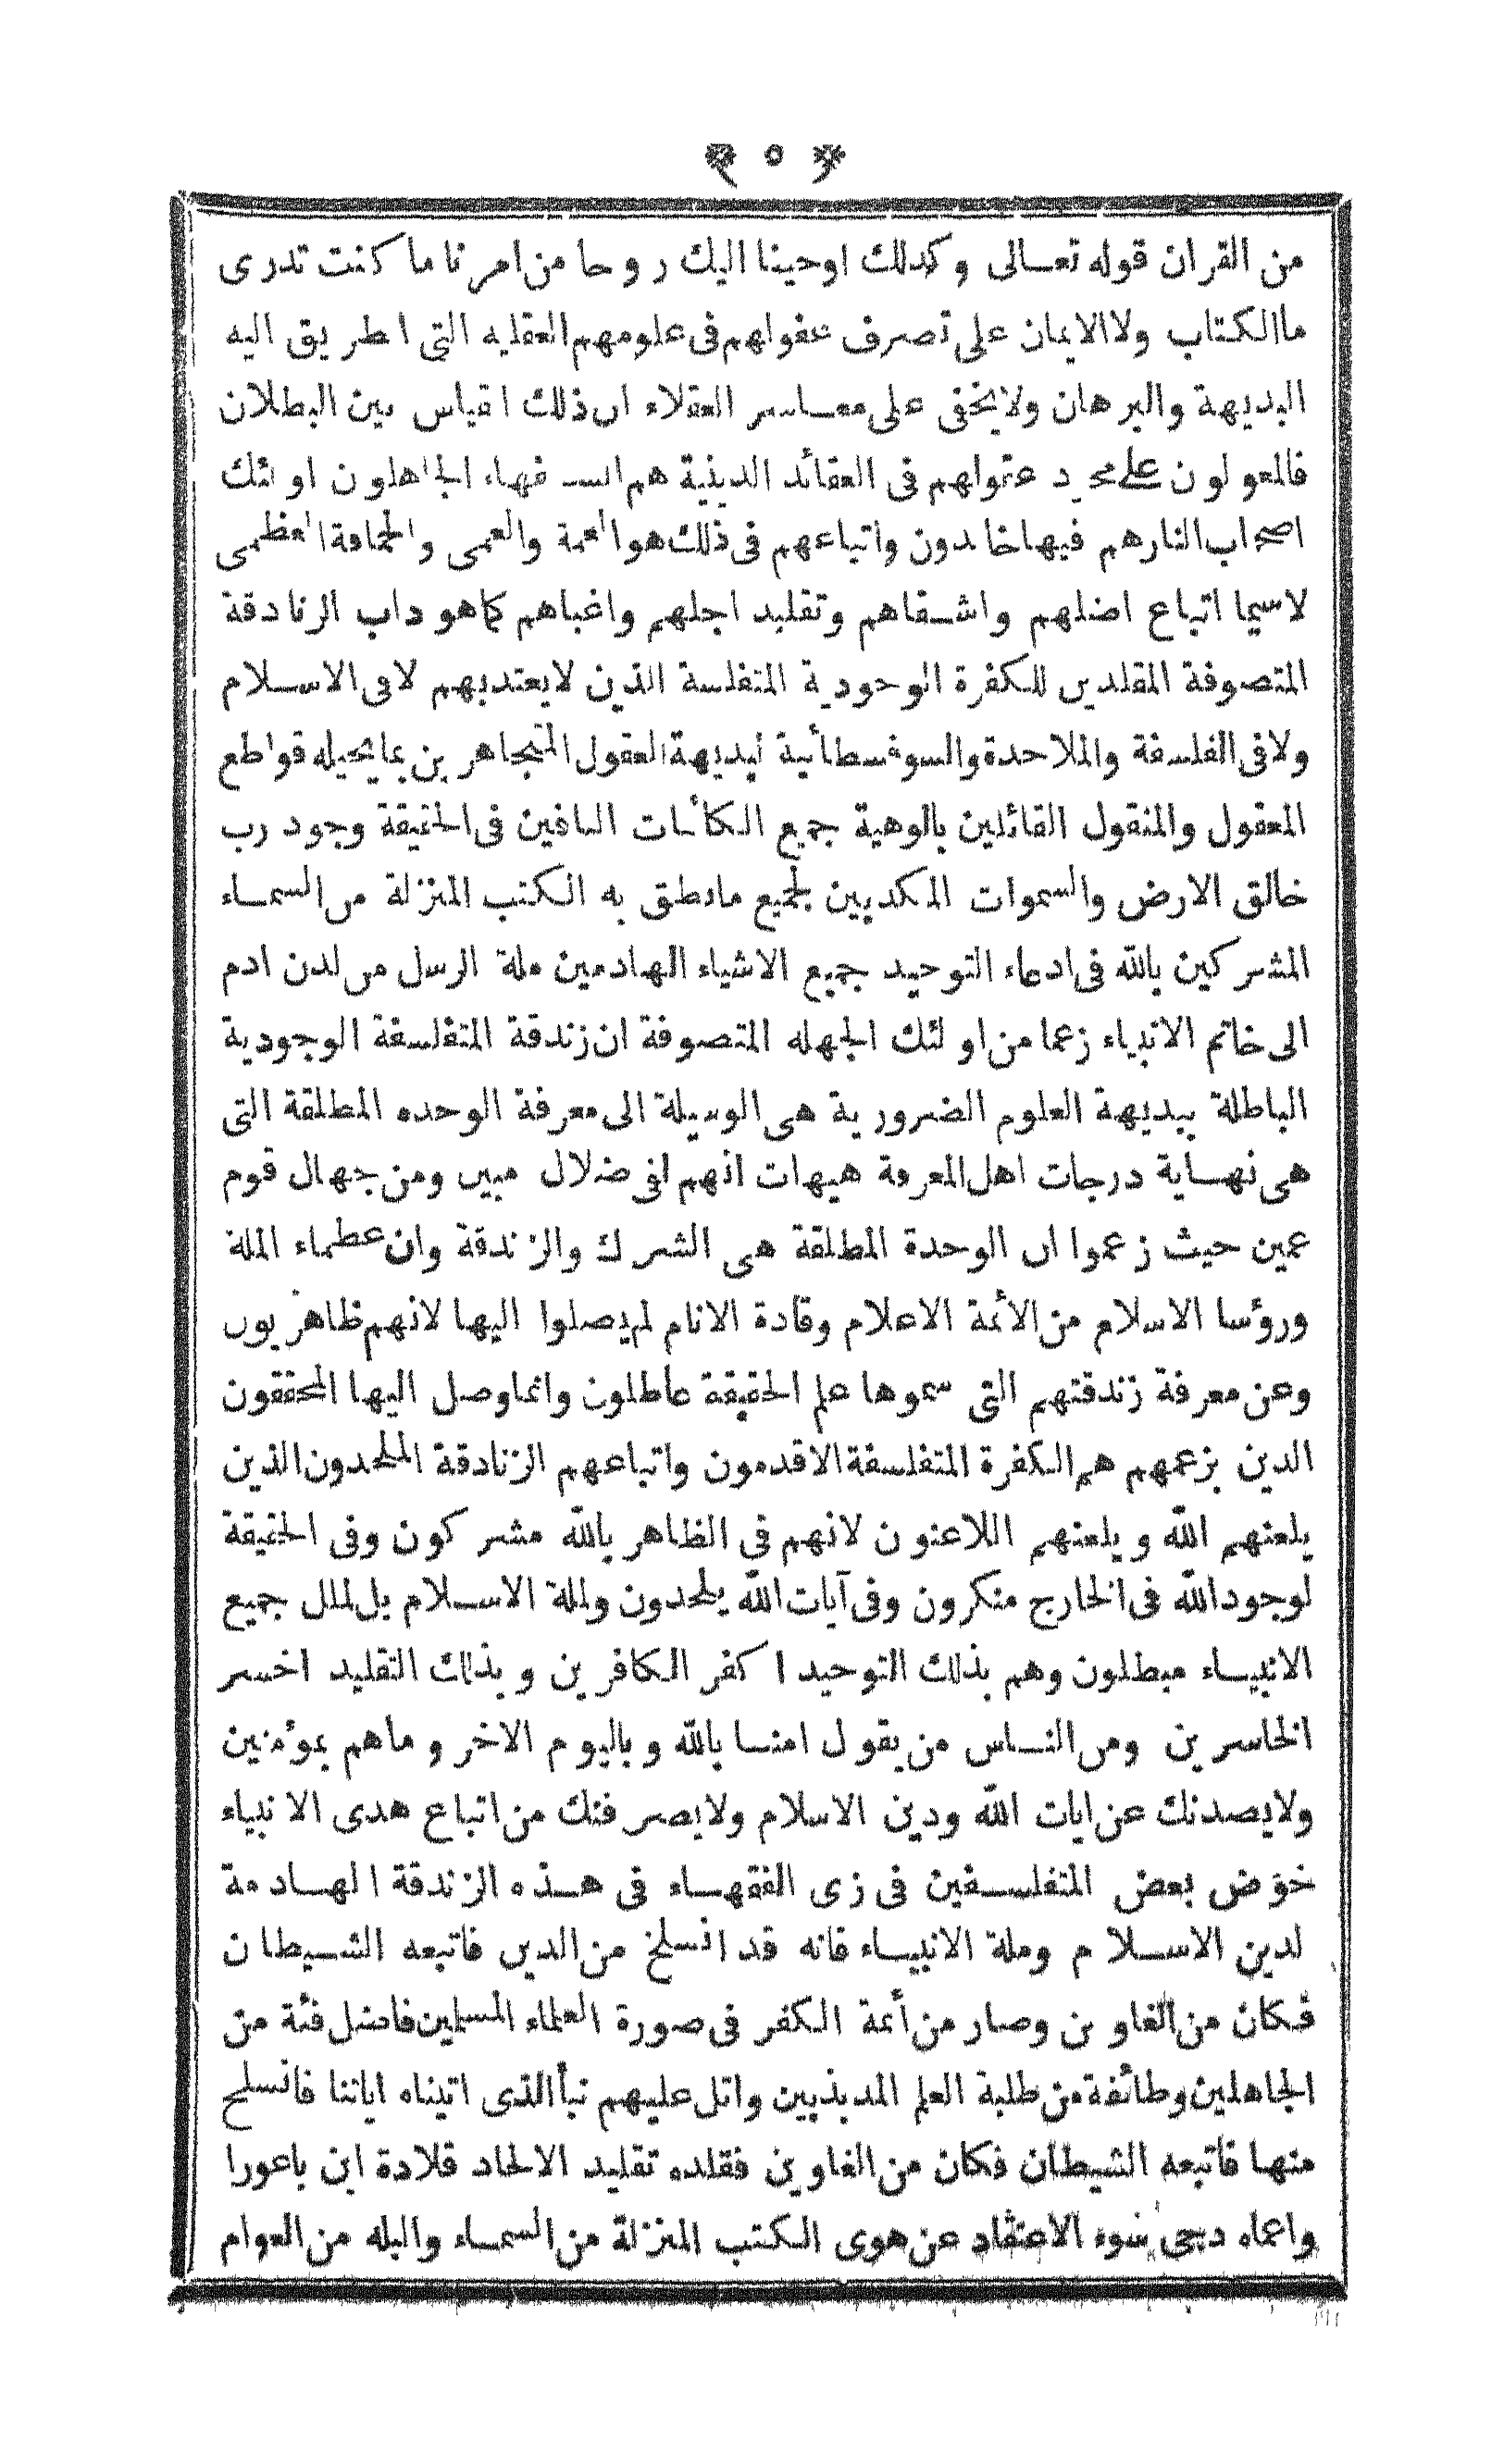 ٥
من القران قوله تعالى وكذلك اوحينا اليك روحا من امرنا ما كنت تدرى
ما الكتاب ولا الايمان على تصرف عقولهم فى علومهم العقليه التى اطريق اليه
البديهة والبرهان ولا يخفى على معاسر العقلاء ان ذلك اقياس بين البطلان
فالمعولون على مجرد عقولهم فى العقائد الدينية هم السفهاء الجاهلون اولئك
اصحاب النارهم فيها خالدون واتباعهم فى ذلك هو العمة والعمى والحماقة العظمى
لاسيما اتباع اضلهم واشقاهم وتقليد اجلهم واغباهم كماهو داب الزنادقة
المتصوفة المقلدين للكفرة الوجودية المتفلسة الذين لايعتدبهم لافى الاسلام
ولافى الفلسفة والملاحدة والسوفسطائية لبديهة العقول المتجاهرين بما يحيله قواطع
المعقول والمنقول القائلين بالوهية جميع الكائنات النافين فى الحقيقة وجود رب
خالق الارض والسموات المكذبين لجميع مانطق به الكتب المنزلة من السماء
المشركين بالله فى ادعاء التوحيد جميع الاشياء الهادمين ملة الرسل من لدن ادم
الى خاتم الانبياء زعما من اولئك الجهله المتصوفة ان زندقة المتفلسفة الوجودية
الباطلة ببديهة العلوم الضرورية هى الوسيلة الى معرفة الوحده المطلقة التى
هى نهاية درجات اهل المعرفة هيهات انهم لفى ضلال مبين ومن جهال قوم
عمين حيث زعموا ان الوحدة المطلقة هى الشرك والزندقة وان عظماء الملة
ورؤسا الاسلام من الأئمة الاعلام وقادة الانام لم يصلوا اليها لانهم ظاهريون
وعن معرفة زندقتهم التى سموها علم الحقيقة عاطلون وانما وصل اليها المحققون
الذين بزعمهم هم الكفرة المتفلسفة الاقدمون واتباعهم الزنادقة الملحدون الذين
يلعنهم الله ويلعنهم اللاعنون لانهم فى الظاهر بالله مشركون وفى الحقيقة
لوجود الله فى الخارج منكرون وفى آيات الله يلحدون ولملة الاسلام بل لملل جميع
الانبياء مبطلون وهم بذلك التوحيد اكفر الكافرين وبذلك التقليد اخسر
الخاسرين ومن الناس من يقول امنا بالله وباليوم الاخر وماهم بمؤمنين
ولايصدنك عن ايات الله ودين الاسلام ولايصرفنك من اتباع هدى الانبياء
خوض بعض المتفلسفين فى زى الفقهاء فى هذه الزندقة الهادمة
لدين الاسلام وملة الانبياء فانه قد انسلخ من الدين فاتبعه الشيطان
فكان من الغاوين وصار من أئمة الكفر فى صورة العلماء المسلمين فاضل فئة من
الجاهلين وطائفة من طلبة العلم المذبذبين واتل عليهم نبأ الذى اتيناه اياتنا فانسلخ
منها فاتبعه الشيطان فكان من الغاوين فقلده تقليد الالحاد قلادة ابن باعورا
واعماه دجى سوء الاعتقاد عن هوى الكتب المنزلة من السماء والبله من العوام